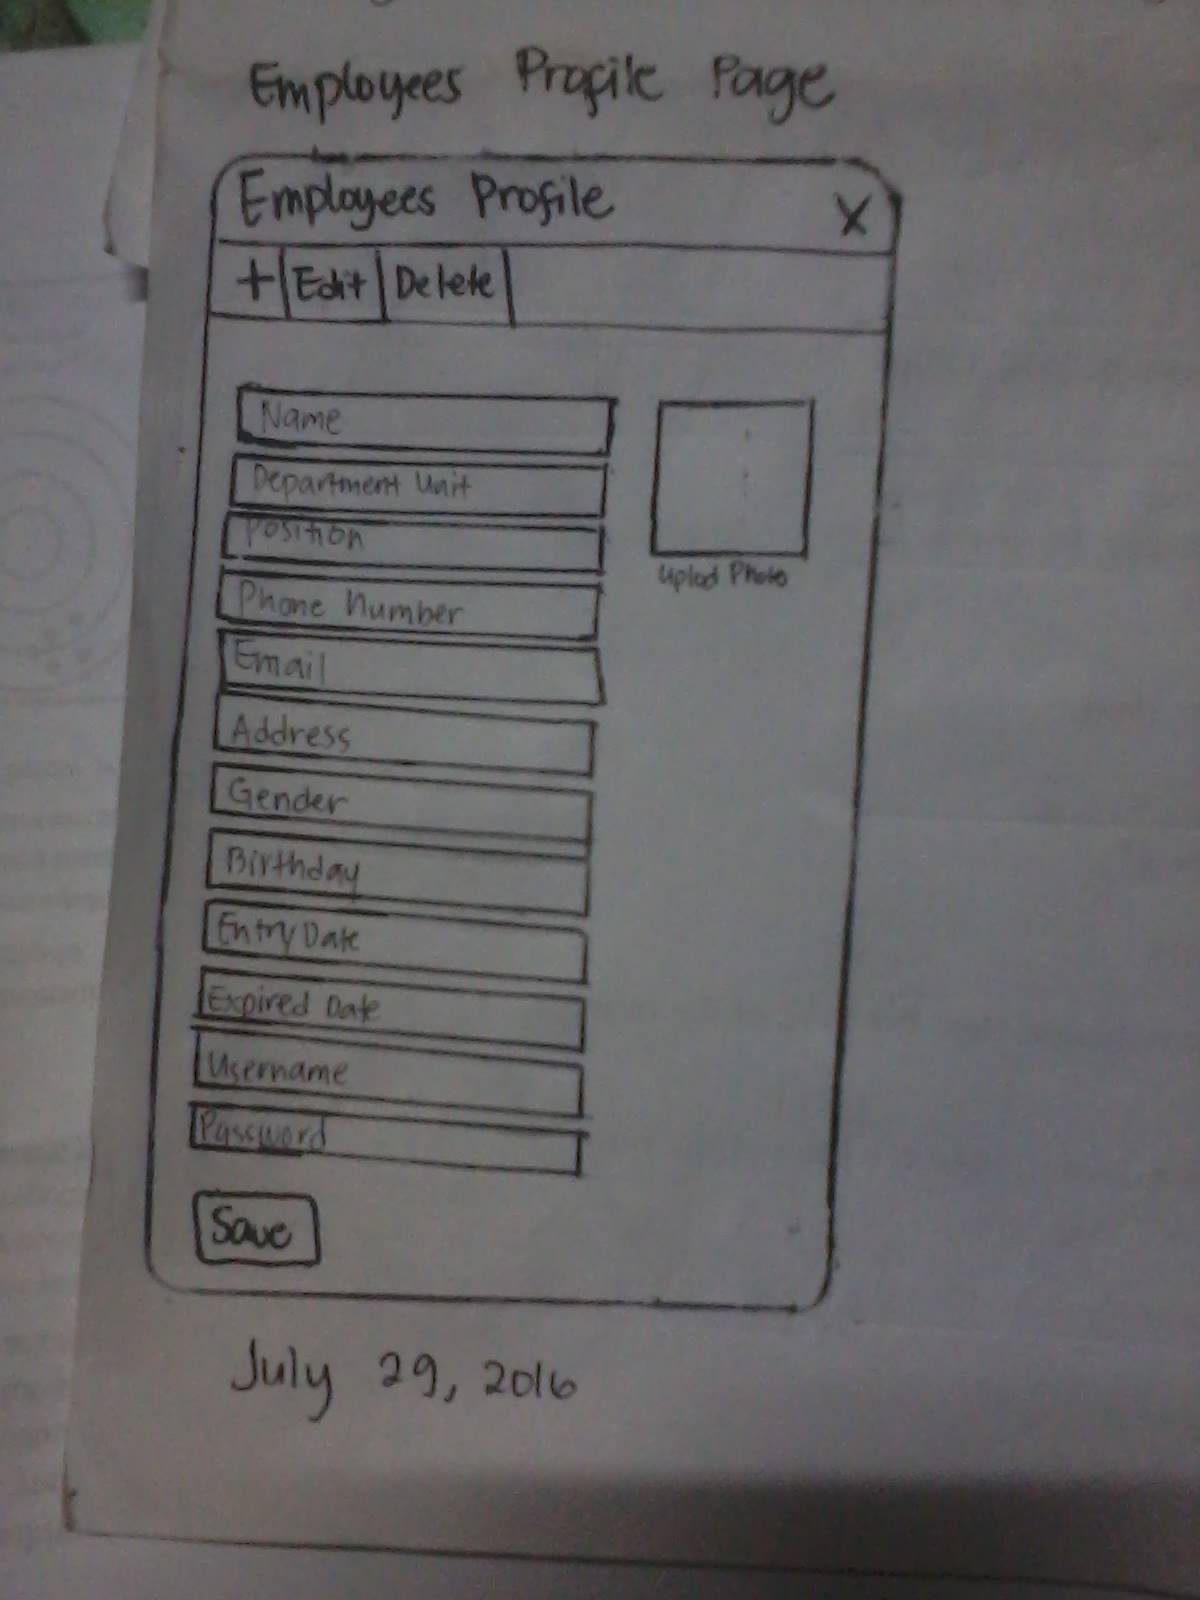 Employees Profile Page
Employees Profile X
+ Edit Delete
Name
Department Unit
Position
Phone Number
Email
Address
Gender
Birthday
Entry Date
Expired Date
Username
Password
Uplod Photo
Save
July 29, 2016